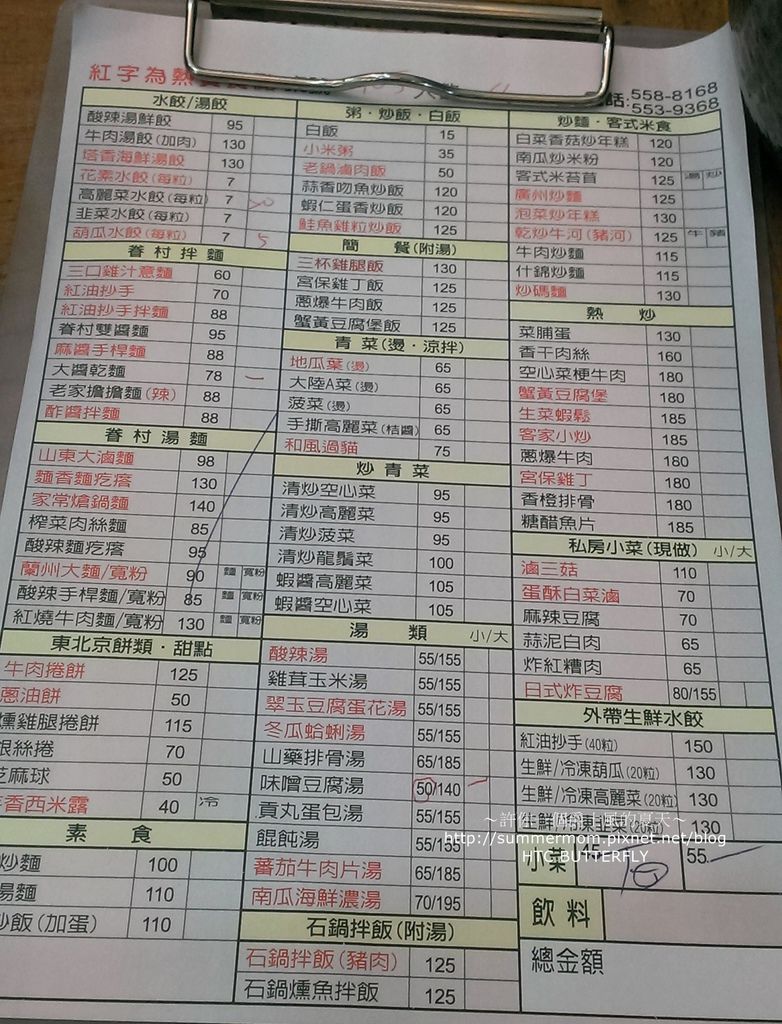 紅字為熱
558-8168
話:553-9368
水餃/湯餃
酸辣湯鮮餃 95
牛肉湯餃(加肉) 130
塔香海鮮湯餃 130
花素水餃(每粒) 7
高麗菜水餃(每粒) 7
韭菜水餃(每粒) 7
胡瓜水餃(每粒) 7 5
眷村拌麵
三口雞汁意麵 60
紅油抄手 70
紅油抄手拌麵 88
眷村雙醬麵 95
麻醬手桿麵 88
大醬乾麵 78
老家擔擔麵(辣) 88
酢醬拌麵 88
眷村湯麵
山東大滷麵 98
麵香麵疙瘩 130
家常熗鍋麵 140
榨菜肉絲麵 85
酸辣麵疙瘩 95
蘭州大麵/寬粉 90 麵 寬粉
酸辣手桿麵/寬粉 85 麵 寬粉
紅燒牛肉麵/寬粉 130 麵 寬粉
東北京餅類·甜點
牛肉捲餅 125
蔥油餅 50
燻雞腿捲餅 115
銀絲捲 70
芝麻球 50
香西米露 40 冷
素食
炒麵 100
湯麵 110
炒飯(加蛋) 110
粥·炒飯·白飯
白飯 15
小米粥 35
老鍋滷肉飯 50
蒜香吻魚炒飯 120
蝦仁蛋香炒飯 120
鮭魚雞粒炒飯 125
簡餐(附湯)
三杯雞腿飯 130
宮保雞丁飯 125
蔥爆牛肉飯 125
蟹黃豆腐堡飯 125
青菜(燙·涼拌)
地瓜葉(燙) 65
大陸A菜(燙) 65
菠菜(燙) 65
手撕高麗菜(桔醬) 65
和風過貓 75
炒青菜
清炒空心菜 95
清炒高麗菜 95
清炒菠菜 95
清炒龍鬚菜 100
蝦醬高麗菜 105
蝦醬空心菜 105
湯類 小/大
酸辣湯 55/155
雞茸玉米湯 55/155
翠玉豆腐蛋花湯 55/155
冬瓜蛤蜊湯 55/155
山藥排骨湯 65/185
味噌豆腐湯 50/140
貢丸蛋包湯 55/155
餛飩湯 55/155
蕃茄牛肉片湯 65/185
南瓜海鮮濃湯 70/195
石鍋拌飯(附湯)
石鍋拌飯(豬肉) 125
石鍋燻魚拌飯 125
炒麵·客式米食
白菜香菇炒年糕 120
南瓜炒米粉 120
客式米苔苜 125 湯 炒
廣州炒麵 125
泡菜炒年糕 130
乾炒牛河(豬河) 125 牛 豬
牛肉炒麵 115
什錦炒麵 115
炒碼麵 130
熱炒
菜脯蛋 130
香干肉絲 160
空心菜梗牛肉 180
蟹黃豆腐堡 180
生菜蝦鬆 185
客家小炒 185
蔥爆牛肉 180
宮保雞丁 180
香橙排骨 180
糖醋魚片 185
私房小菜(現做) 小/大
滷三菇 110
蛋酥白菜滷 70
麻辣豆腐 70
蒜泥白肉 65
炸紅糟肉 65
日式炸豆腐 80/155
外帶生鮮水餃
紅油抄手(40粒) 150
生鮮/冷凍胡瓜(20粒) 130
生鮮/冷凍高麗菜(20粒) 130
生鮮/冷凍韭菜(20粒) 130
http://summermom.pixnet.net/blog
HTC BUTTERFLY
小菜 55
飲料
總金額